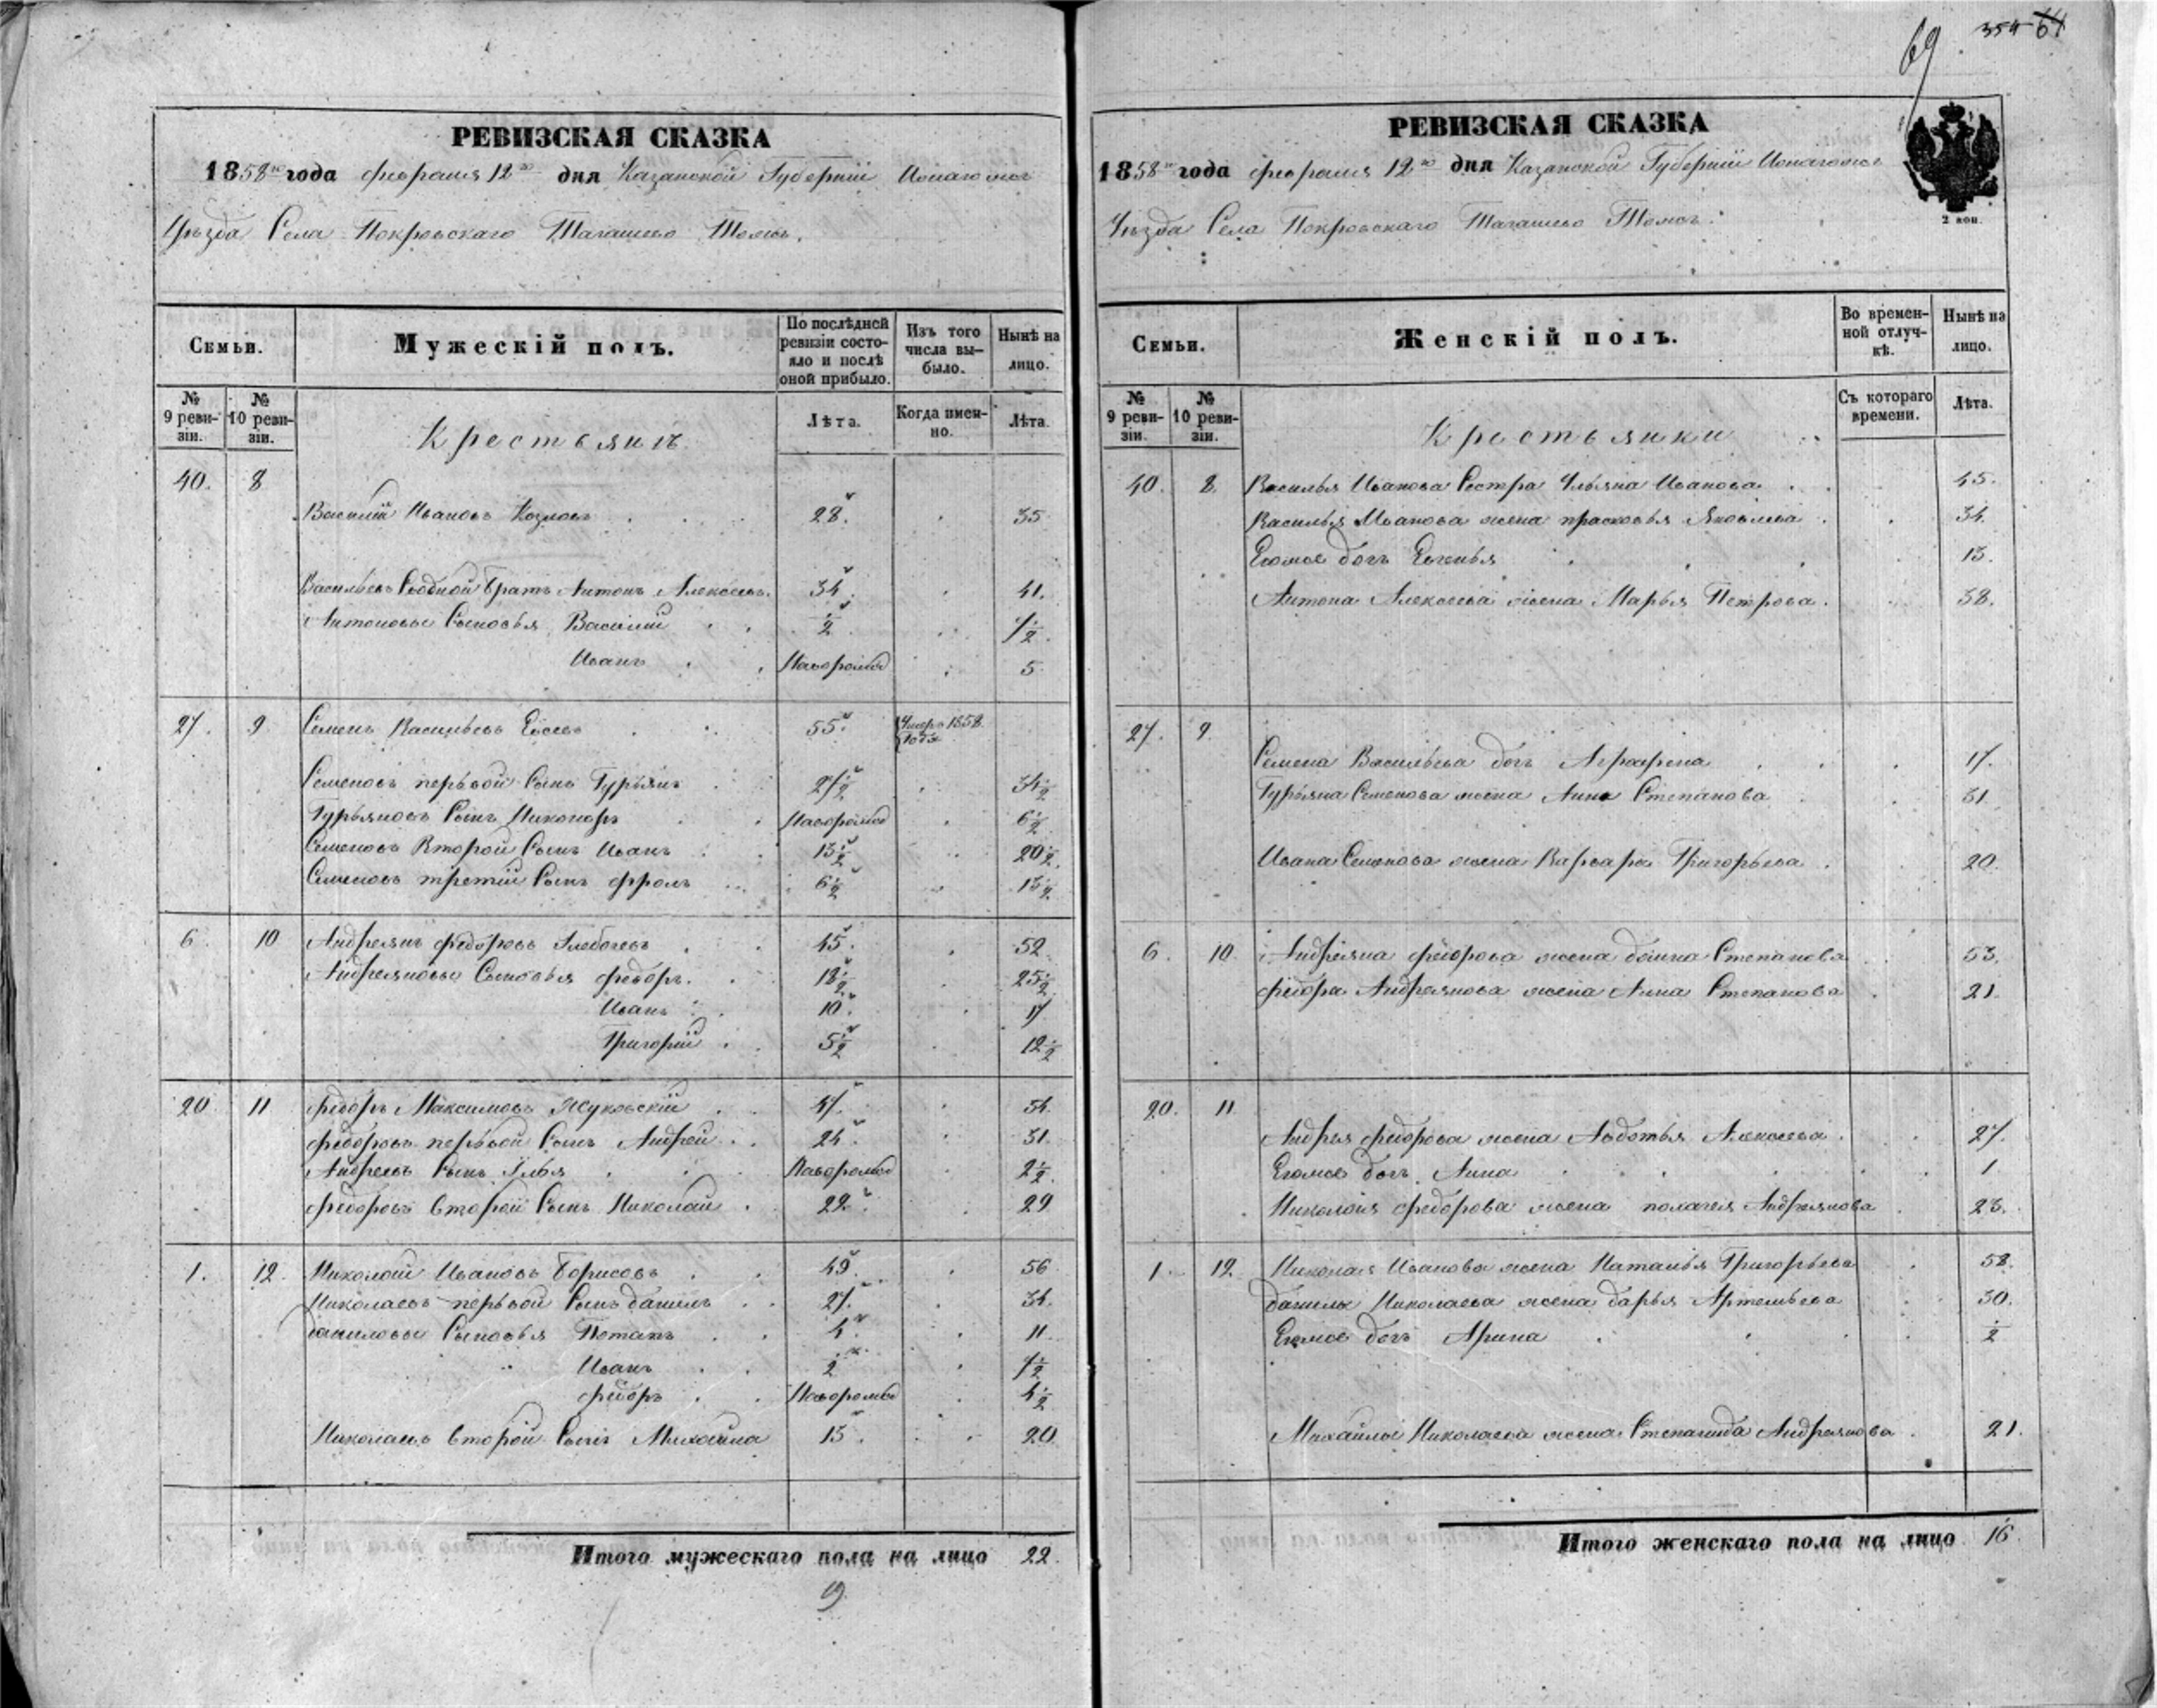 69 354 64
РЕВИЗСКАЯ СКАЗКА
1858го года февраля 12го дня Казанской Губернии
Уѣзда Села Покровскаго Тагашево Томъ.
Семьи.
Мужескій полъ.
По послѣдней ревизіи состояло и послѣ оной прибыло.
Изъ того числа выбыло.
Нынѣ на лицо.
№ 9 ревизіи.
№ 10 ревизіи.
Крестьянъ
Лѣта.
Когда именно.
Лѣта.
40. 8
Василій Ивановъ Козловъ 28. 35
Васильевъ Сводной братъ Антонъ Алексеевъ. 34. 41.
Антоновы Сыновья Василий ½ 7½.
Иванъ Новорожд 5.
27. 9. Семенъ Васильевъ Евсеевъ 55. Умеръ 1858 года
Семеновъ первый Сынъ Гурьянъ 27½ 34½
Гурьяновъ Сынъ Никоноръ Новорожд 6½
Семеновъ Второй Сынъ Иванъ 13½ 20½.
Семеновъ третий Сынъ Фролъ 6½ 13½.
6. 10 Андреянъ Федоровъ Глебочевъ 45. 52.
Андреяновы Сыновья Федоръ. 18½ 25½
Иванъ 10. 17
Григорий 5½ 12½
20 11 Федоръ Максимовъ Жуковский 47. 54.
Федоровъ первой Сынъ Андрей 24. 31.
Андреевъ Сынъ Илья Новорожд 2½.
Федоровъ второй Сынъ Николай 22. 29
1. 12. Николай Ивановъ Борисовъ 49. 56
Николаевъ первой Сынъ Данилъ 27. 34.
Даниловы Сыновья Потапъ 4. 11
Иванъ ½ 7½
Федоръ Новорожд 4½
Николаевъ второй Сынъ Михайла 13. 20
Итого мужескаго пола на лицо 22.
9.
РЕВИЗСКАЯ СКАЗКА
1858го года февраля 12го дня Казанской Губернии
Уѣзда Села Покровскаго Тагашево Томъ.
2 коп.
Семьи.
Женскій полъ.
Во временной отлучкѣ.
Нынѣ на лицо.
№ 9 ревизіи.
№ 10 ревизіи.
Крестьянки
Съ котораго времени.
Лѣта.
40. 8. Василья Иванова Сестра Ульяна Иванова 45.
Василья Иванова жена прасковья Яковлева 34.
Егожъ дочь Евгенья 13.
Антона Алексеева жена Марья Петрова. 38.
27. 9.
Семена Васильева дочь Аграфена 17.
Гурьяна Семенова жена Анна Степанова 31.
Ивана Семенова жена Варвара Григорьева 20.
6. 10. Андреяна Федорова жена Домна Степанова 53.
Федора Андреянова жена Анна Степанова 21.
20. 11.
Андрея Федорова жена Авдотья Алексеева 27.
Егожъ дочь Анна 1
Николая Федорова жена пелагея Андреянова 23.
1. 12. Николая Иванова жена Наталья Григорьева 58.
Данилы Николаева жена Дарья Артемьева 30.
Егожъ дочь Арина ½
Михайлы Николаева жена Степанида Андреянова 21.
Итого женскаго пола на лицо 16